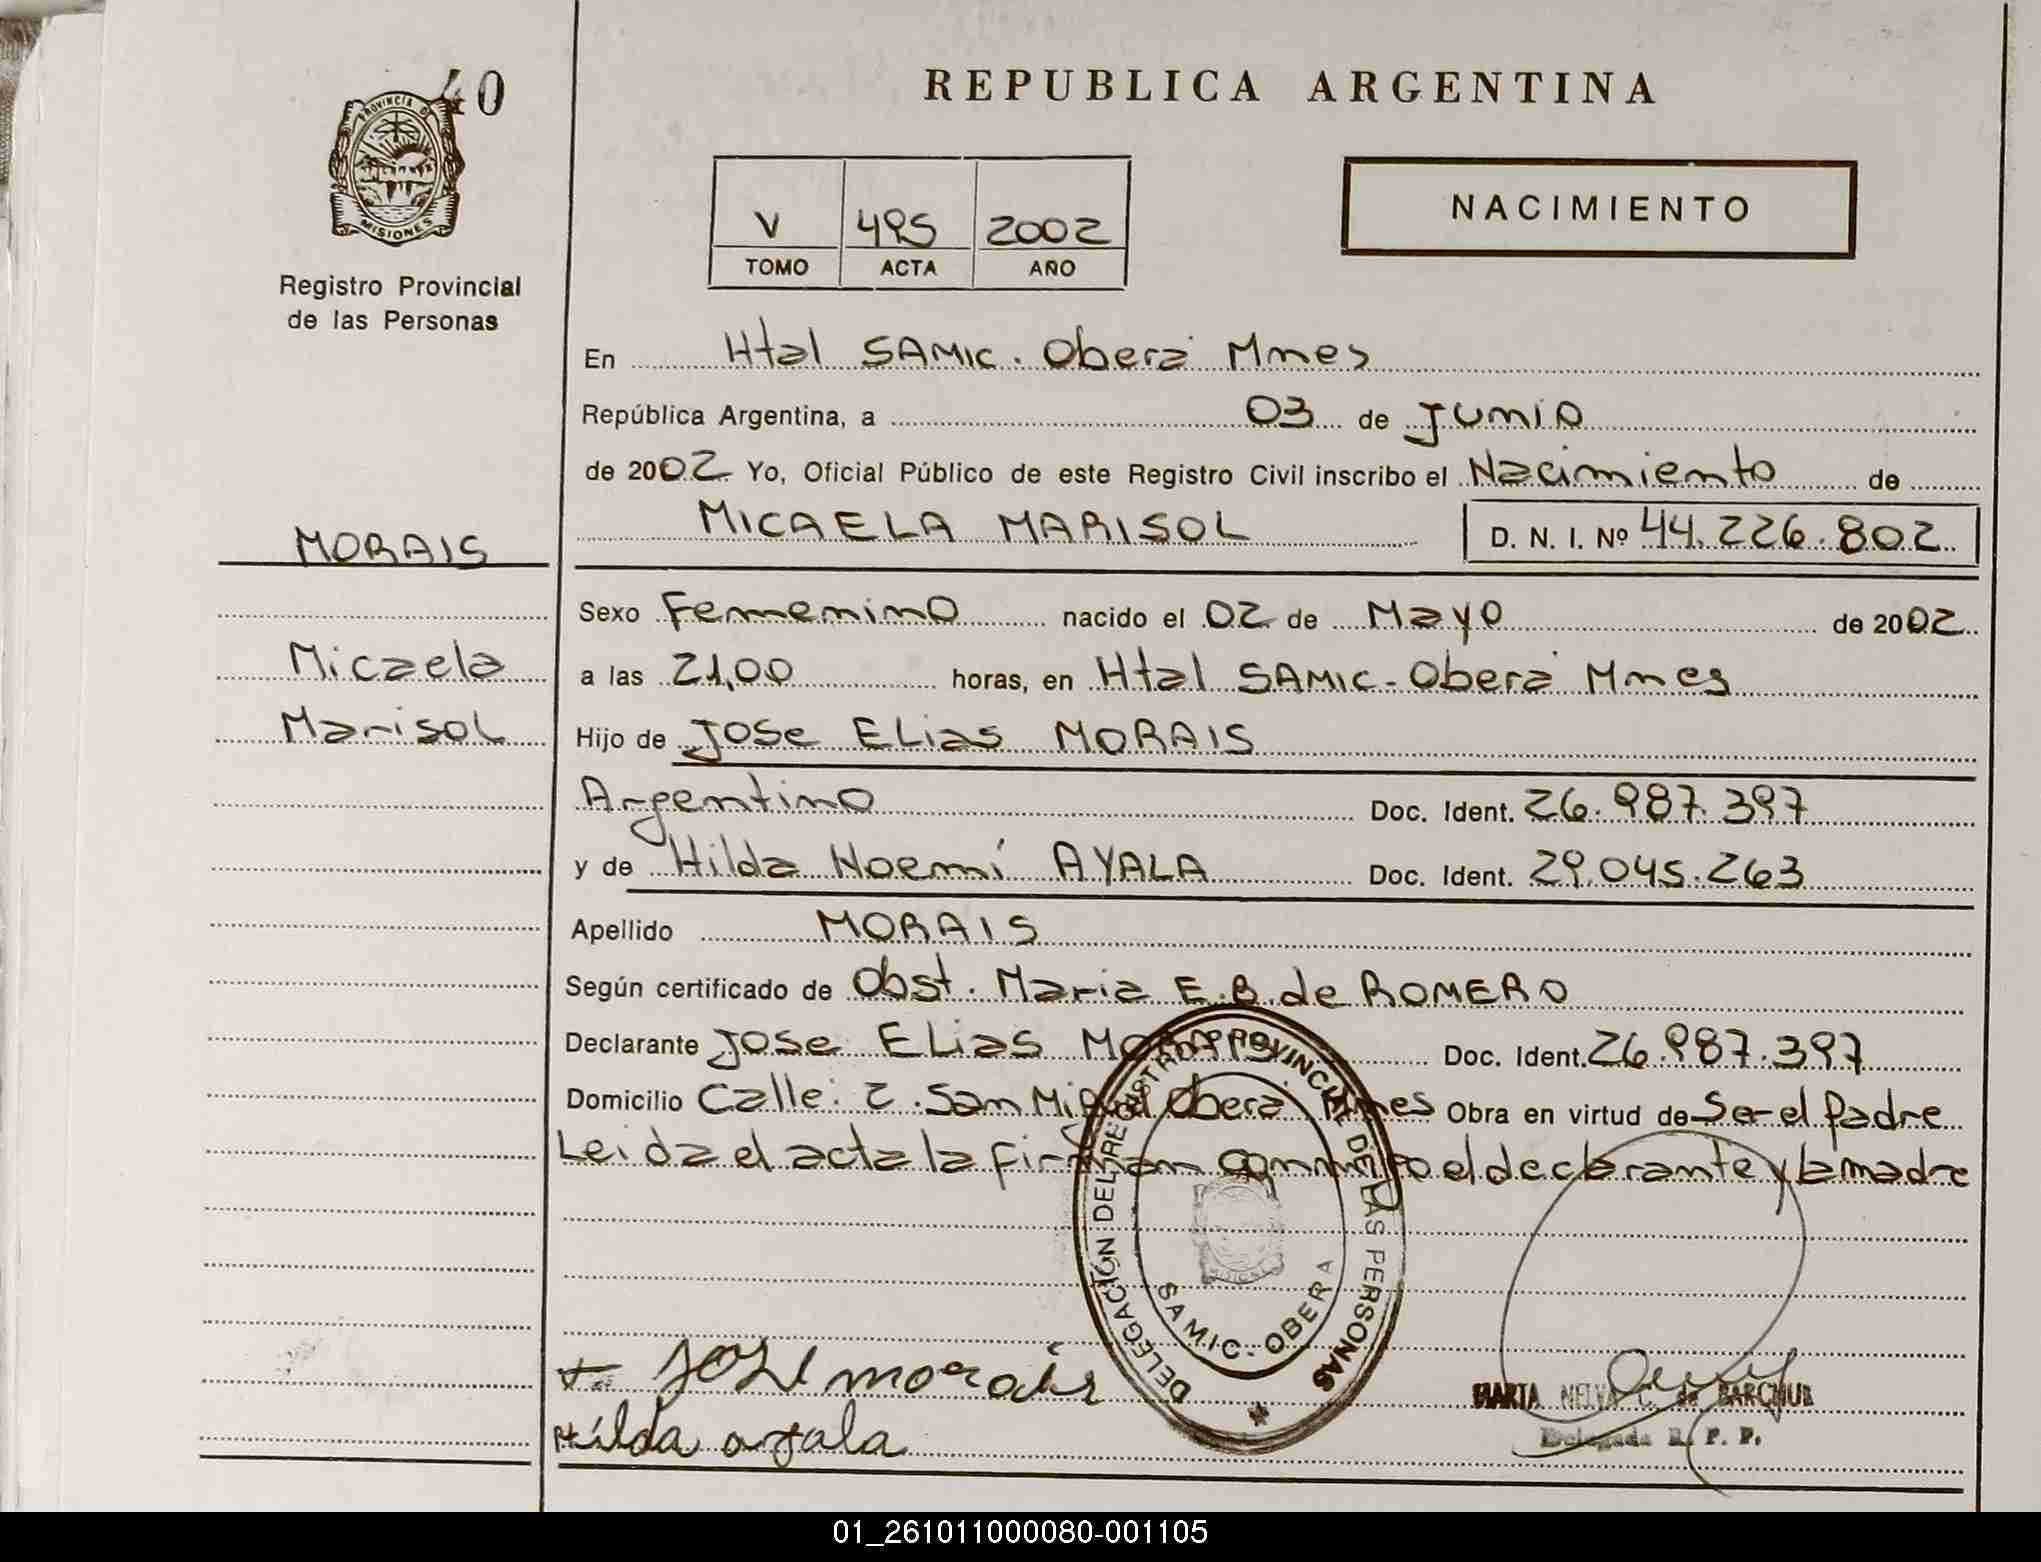 40
REPUBLICA ARGENTINA
PROVINCIA DE
MISIONES
Registro Provincial
de las Personas
V 495 2002
TOMO ACTA AÑO
NACIMIENTO
En Htal SAMIC. Oberá Mnes
República Argentina, a 03 de Junio
de 2002 Yo, Oficial Público de este Registro Civil inscribo el Nacimiento de
MICAELA MARISOL D. N. I. Nº 44.226.802
MORAIS
Micaela
Marisol
Sexo Femenino nacido el 02 de Mayo de 2002
a las 21,00 horas, en Htal SAMIC - Oberá Mnes
Hijo de Jose Elias MORAIS
Argentino Doc. Ident. 26.987.397
y de Hilda Noemí AYALA Doc. Ident. 29.045.263
Apellido MORAIS
Según certificado de Obst. Maria E.B. de ROMERO
Declarante Jose Elias MORAIS Doc. Ident. 26.987.397
Domicilio Calle: 2. San Miguel Oberá Mnes Obra en virtud de Ser el Padre
Leida el acta la firman conmigo el declarante y la madre
DELEGACIÓN DEL REGISTRO PROVINCIAL DE LAS PERSONAS
SAMIC - OBERA
MISIONES
José morais
Hilda ayala
MARTA NELVA C. de BARCHUK
Delegada R. P. P.
01_261011000080-001105